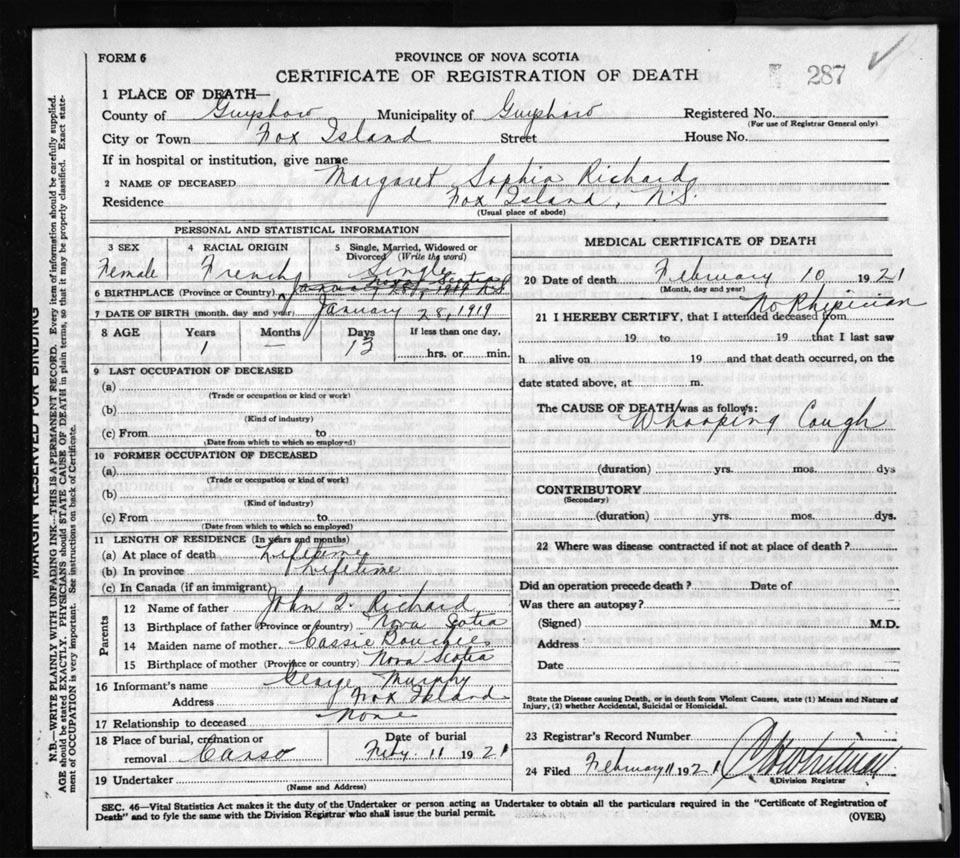 FORM 6
PROVINCE OF NOVA SCOTIA
CERTIFICATE OF REGISTRATION OF DEATH
287
1 PLACE OF DEATH—
County of Guysboro Municipality of Guysboro Registered No.
(For use of Registrar General only)
City or Town Fox Island Street House No.
If in hospital or institution, give name
2 NAME OF DECEASED Margaret Sophia Richard
Residence Fox Island, N.S.
(Usual place of abode)
PERSONAL AND STATISTICAL INFORMATION
3 SEX
Female
4 RACIAL ORIGIN
French
5 Single, Married, Widowed or Divorced (Write the word)
Single
6 BIRTHPLACE (Province or Country) January 28, 1919 N.S
7 DATE OF BIRTH (month, day and year) January 28, 1919
8 AGE Years Months Days If less than one day,
1 — 13 hrs. or min.
9 LAST OCCUPATION OF DECEASED
(a)
(Trade or occupation or kind or work)
(b)
(Kind of industry)
(c) From to
(Date from which to which so employed)
10 FORMER OCCUPATION OF DECEASED
(Trade or occupation or kind of work)
(b)
(Kind of industry)
(c) From to
(Date from which to which so employed)
11 LENGTH OF RESIDENCE (In years and months)
(a) At place of death Lifetime
(b) In province Lifetime
(c) In Canada (if an immigrant)
Parents
12 Name of father John Richard
13 Birthplace of father (Province or country) Nova Scotia
14 Maiden name of mother Cassie Bouchie
15 Birthplace of mother (Province or country) Nova Scotia
16 Informant's name George Murphy
Address Fox Island
17 Relationship to deceased None
18 Place of burial, cremation or removal Canso
Date of burial
Feby. 11 1921
19 Undertaker
(Name and Address)
MEDICAL CERTIFICATE OF DEATH
20 Date of death February 10 1921
(Month, day and year)
No Physician
21 I HEREBY CERTIFY, that I attended deceased from
19 to 19 that I last saw
h alive on 19 and that death occurred, on the
date stated above, at m.
The CAUSE OF DEATH was as follows:
Whooping Cough
(duration) yrs. mos. dys
CONTRIBUTORY
(Secondary)
(duration) yrs. mos. dys.
22 Where was disease contracted if not at place of death?
Did an operation precede death? Date of
Was there an autopsy?
(Signed) M.D.
Address
Date
State the Disease causing Death, or in death from Violent Causes, state (1) Means and Nature of
Injury, (2) whether Accidental, Suicidal or Homicidal.
23 Registrar's Record Number
24 Filed February 11 1921
Division Registrar
SEC. 46—Vital Statistics Act makes it the duty of the Undertaker or person acting as Undertaker to obtain all the particulars required in the "Certificate of Registration of
Death" and to fyle the same with the Division Registrar who shall issue the burial permit.
(OVER)
MARGIN RESERVED FOR BINDING
N.B.—WRITE PLAINLY WITH UNFADING INK—THIS IS A PERMANENT RECORD. Every item of information should be carefully supplied.
AGE should be stated EXACTLY. PHYSICIANS should STATE CAUSE OF DEATH in plain terms, so that it may be properly classified. Exact state-
ment of OCCUPATION is very important. See instructions on back of Certificate.